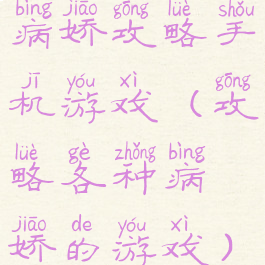 bìng jiāo gōng lüè shǒu
病娇攻略手
jī yóu xì gōng
机游戏（攻
lüè gè zhǒng bìng
略各种病
jiāo de yóu xì
娇的游戏）